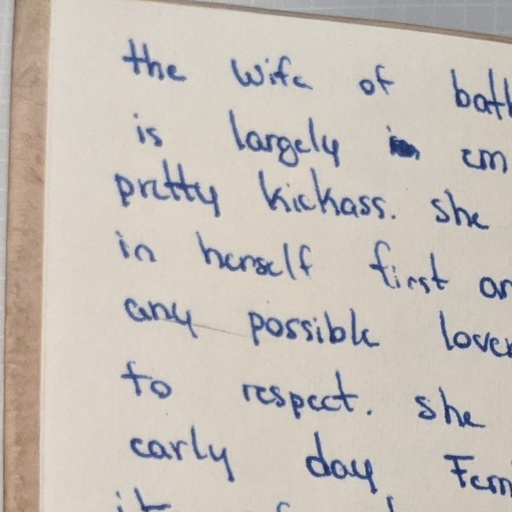 the wife of bath
is largely em
pretty kickass. she
in herself first an
any possible lover
to respect. she
early day, Fem
it